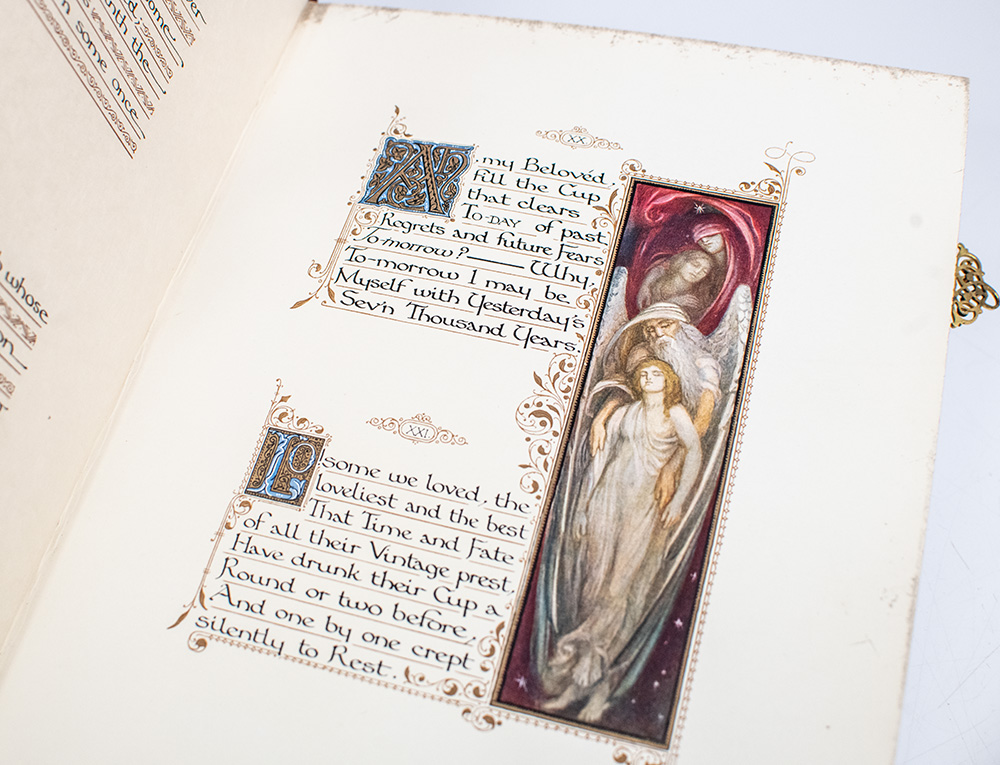 the
some once
whose
XX
AH, my Belovéd,
fill the Cup
that clears
TO-DAY of past
Regrets and future Fears
To-morrow?——Why,
To-morrow I may be
Myself with Yesterday's
Sev'n Thousand Years.
XXI
LO some we loved, the
loveliest and the best
That Time and Fate
of all their Vintage prest,
Have drunk their Cup a
Round or two before,
And one by one crept
silently to Rest.